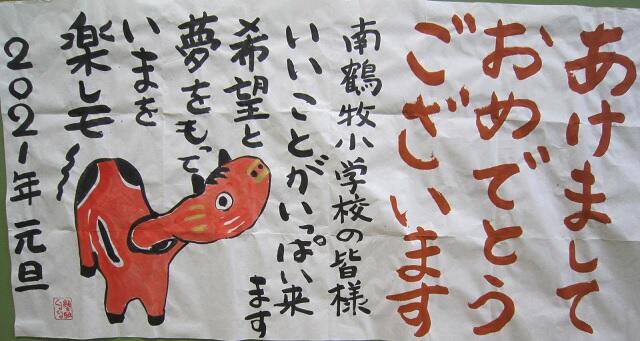 あけまして
おめでとう
ございます
南鶴牧小学校の皆様
いいことがいっぱい来ます
希望と
夢をもって
いまを
楽しモ～
2021年元旦